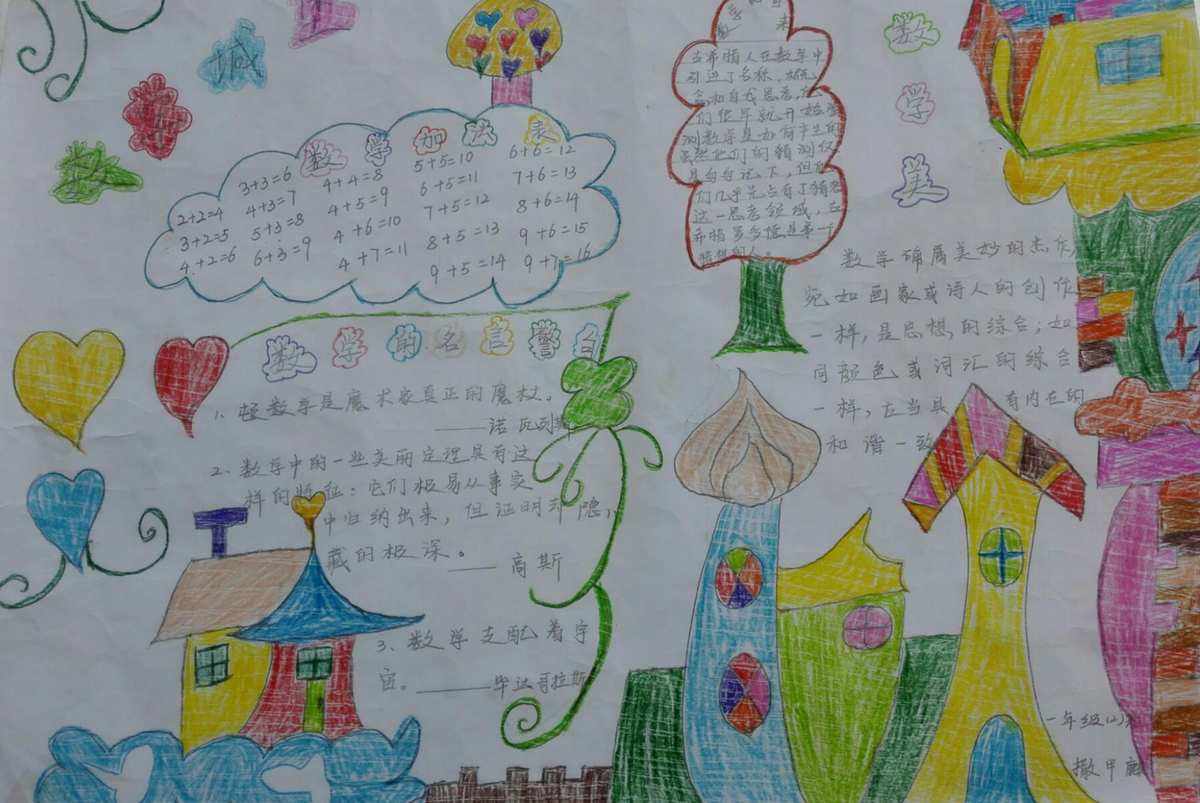 数学城
数学加法表
2+2=4 3+3=6 4+4=8 5+5=10 6+6=12
3+2=5 4+3=7 4+5=9 6+5=11 7+6=13
4+2=6 5+3=8 4+6=10 7+5=12 8+6=14
6+3=9 4+7=11 8+5=13 9+6=15
9+5=14 9+7=16
数学的名言警句
1、 数学是魔术家真正的魔杖。
——诺瓦列斯
2、数学中的一些美丽定理具有这
样的特征：它们极易从事实
中归纳出来，但证明却隐
藏的极深。
——高斯
3、数学支配着宇
宙。——毕达哥拉斯
古希腊人在数学中
引进了名称，概
念和自我思考，
们很早就开始
测数学是如何产生的
虽然他们的猜测仅
是 记下，但
们几乎先占有了猜想
这一思考领域，
希腊
数学美
数学确属美妙的杰作，
宛如画家或诗人的创作
一样，是思想的综合；如
同颜色或词汇的综合
一样，应当具有内在的
和谐一致
一年级(2)